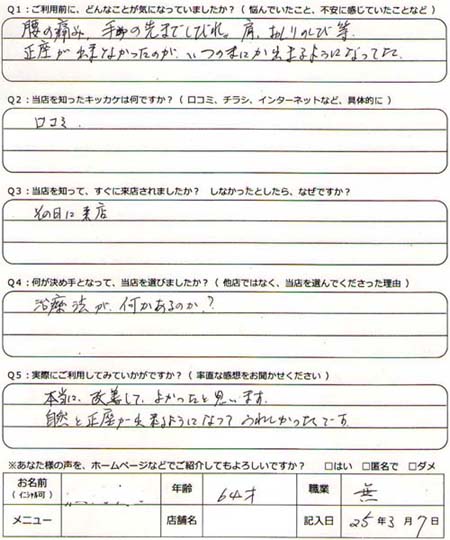 Q1：ご利用前に、どんなことが気になっていましたか？（ 悩んでいたこと、不安に感じていたことなど ）
腰の痛み、手の先までしびれ。肩、おしりのしび 等
正座が出来なかったのが、いつのまにか出来るようになってた
Q2：当店を知ったキッカケは何ですか？（ 口コミ、チラシ、インターネットなど、具体的に ）
口コミ
Q3：当店を知って、すぐに来店されましたか？ しなかったとしたら、なぜですか？
その日に来店
Q4：何が決め手となって、当店を選びましたか？（ 他店ではなく、当店を選んでくださった理由 ）
治療法が、何かあるのか？
Q5：実際にご利用してみていかがですか？（ 率直な感想をお聞かせください ）
本当に、改善して、よかったと思います。
自然と正座が出来るようになって うれしかったです
※あなた様の声を、ホームページなどでご紹介してもよろしいですか？ □はい □匿名で □ダメ
お名前 （ｲﾆｼｬﾙ可） 年齢 64才 職業 無
メニュー 店舗名 記入日 25年3月7日